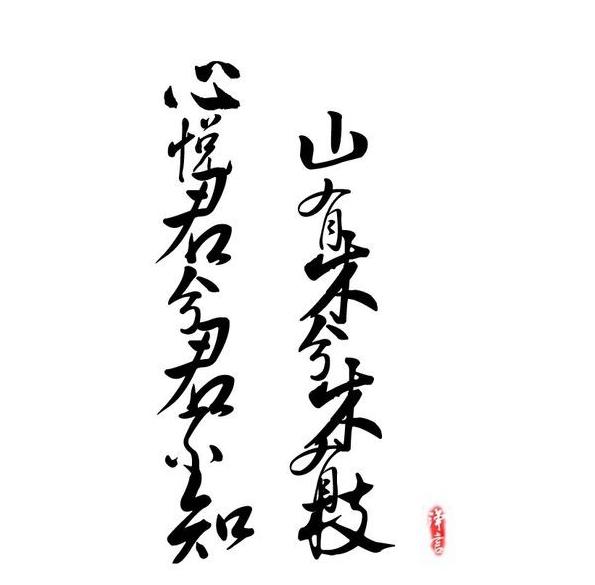 山有朱兮朱有枝
心悦君兮君不知